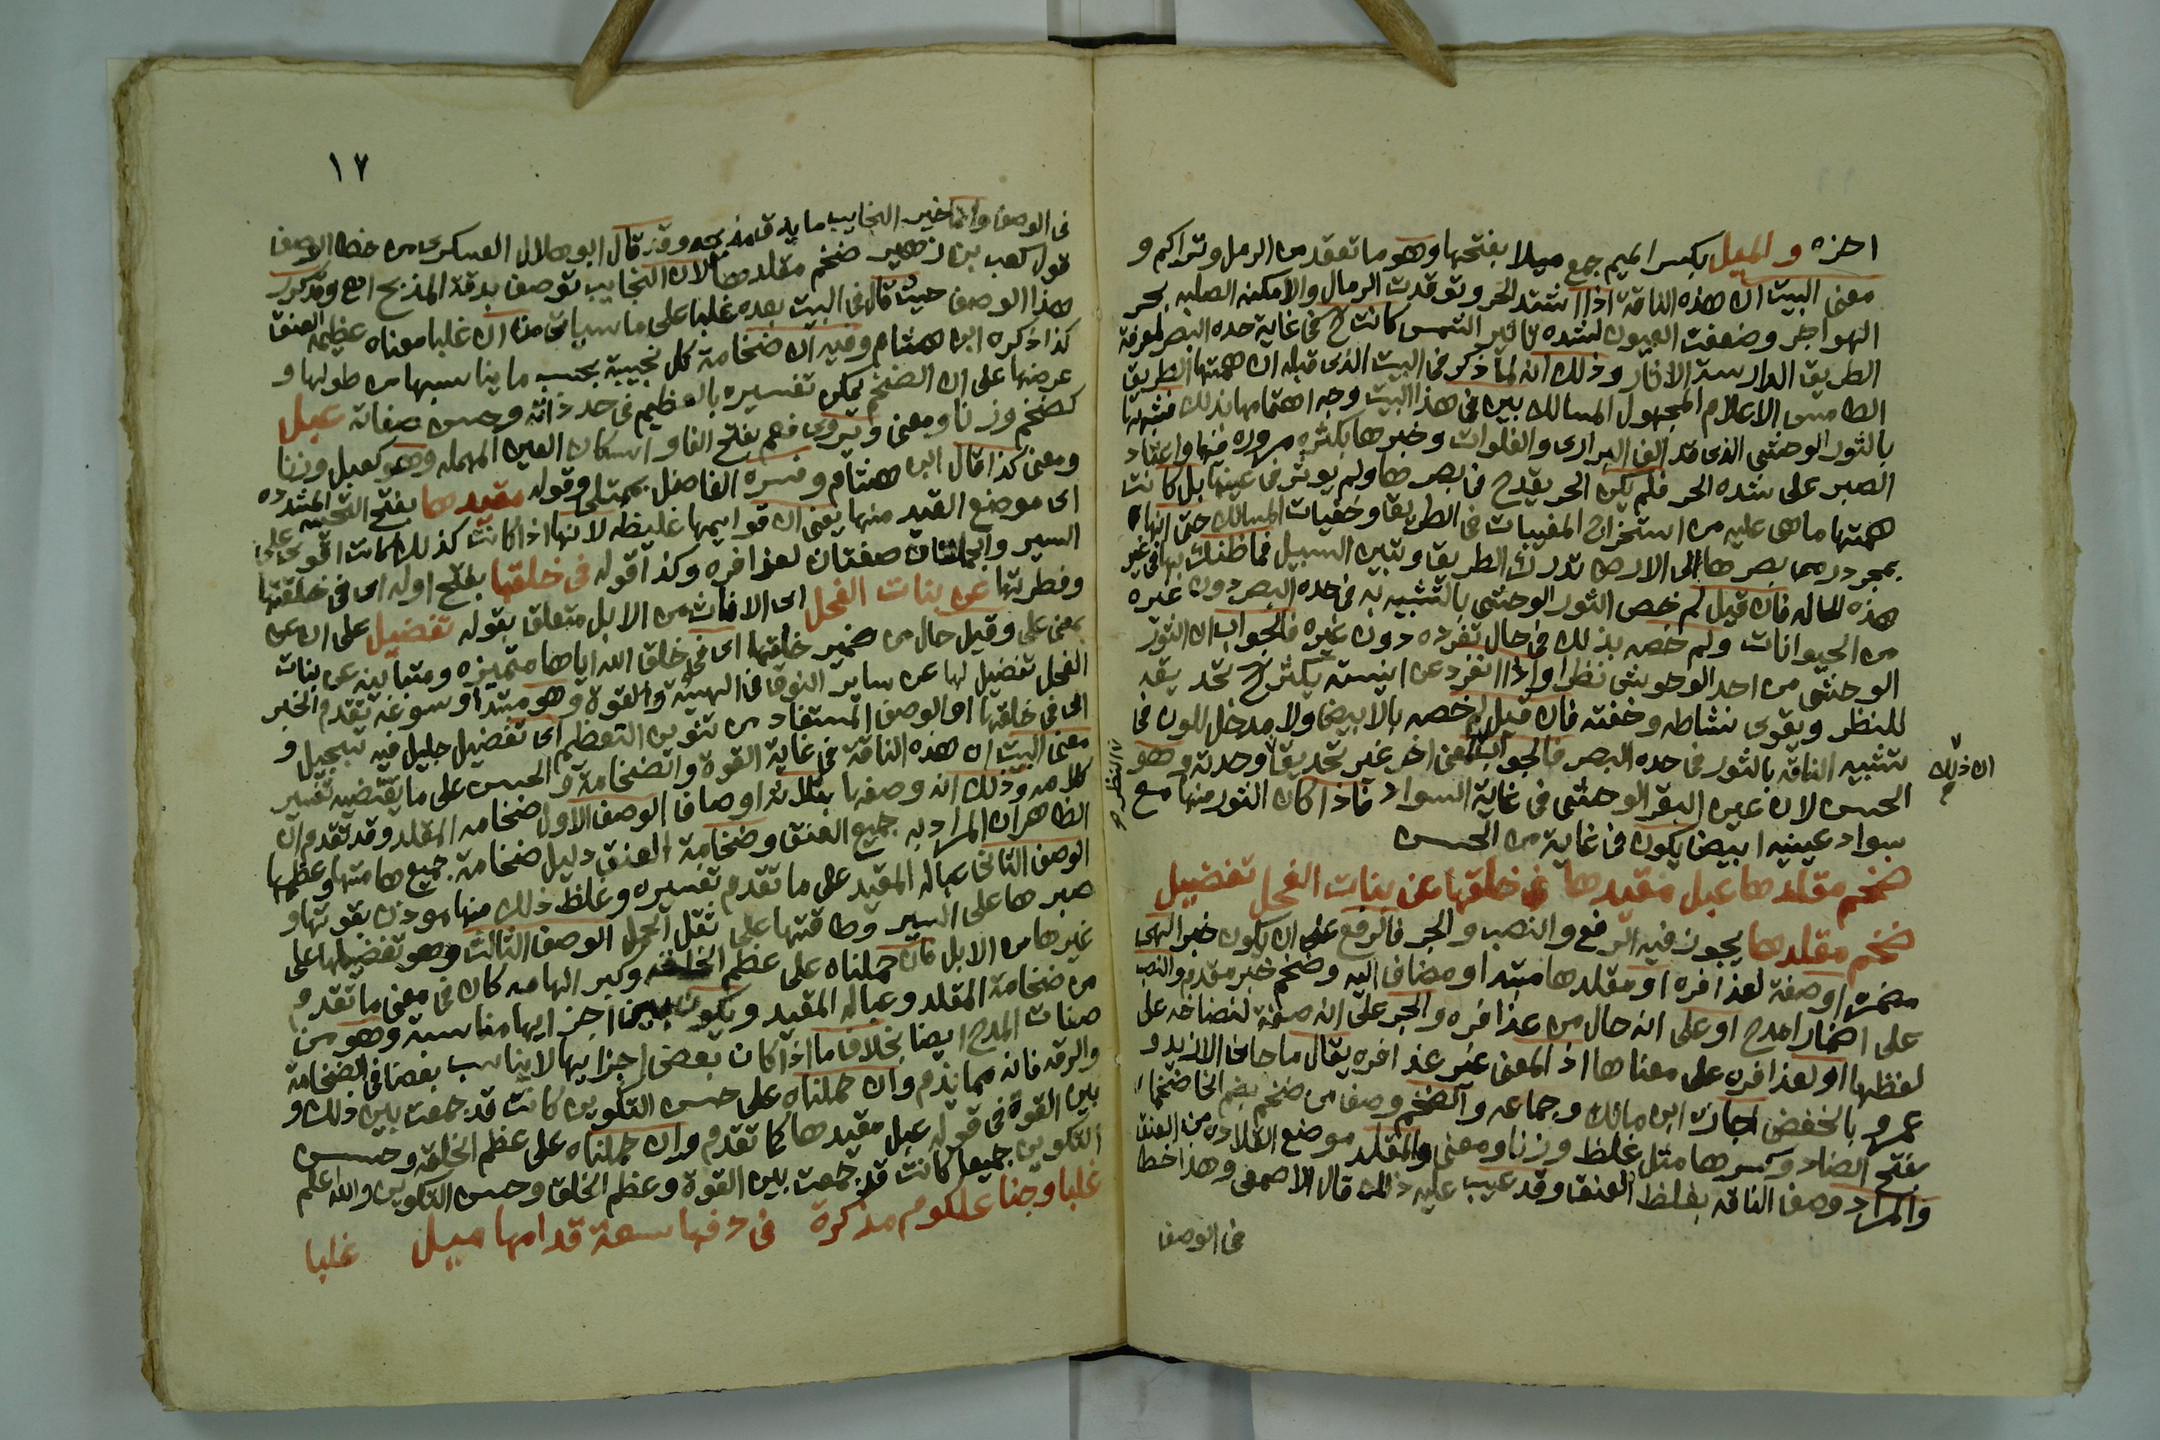 اخره والميل بكسر الميم جمع ميلا بفتحها وهو ما تعقد من الرمل وتراكم و
معنى البيت ان هذه الناقة اذا اشتد الحر وتوقدت الرمال والامكنه الصلبه بحر
الهواجر وضعفت العيون لشده تاثير الشمس كانت ح فى غاية حده البصر لمعرفة
الطريق الدارسة الاثار وذلك انه لما ذكر فى البيت الذى قبله ان همتها الطريق
الطامس الاعلام المجهول المسالك بين فى هذا البيت وجه اهتمامها بذلك فشبهها
بالثور الوحشى الذى قد الف البرارى والفلوات وخبرها بكثره مروره فيها واعتاد
الصبر على شده الحر فلم يكن الحر يقدح فى بصرها ولم يوثر فى عينها بل كانت
همتها ما هى عليه من استخراج المغيبات فى الطريق وخفيات المسالك حتى انها
بمجرد رمى بصرها الى الارض تدرك الطريق وتبين السبيل فما ظنك بها فى غير
هذه الحاله فان قيل لم خص الثور الوحشى بالتشبيه به فى حده البصر دون غيره
من الحيوانات ولم خصه بذلك فى حال تفرده دون غيره فالجواب ان الثور
الوحشى من احد الوحوش نظرا واذا انفرد عن انيسه يكثر ح تحديقه
للنظر ويقوى نشاطه وخفته فان قيل لم خصه بالابيض ولا مدخل للون فى
تشبيه الناقه بالثور فى حده البصر فالجواب لمعنى اخر غير تحديقه وحدته وهو
الحسن لان عين البقر الوحشى فى غاية السواد فاذا كان الثور منها مع
سواد عينيه ابيض يكون فى غاية من الحسن
ان ذلك
النظر
ضخم مقلدها عبل مقيدها فى خلقها عن بنات الفحل تفضيل
ضخم مقلدها يجوز فيه الرفع والنصب والجر فالرفع على ان يكون خبرا لهى
مضمره او صفة لعذافره او مقلدها مبتدا ومضاف اليه وضخم خبر مقدم والنصب
على اضمار امدح او على انه حال من عذافره والجر على انه صفة لنضاخه على
لفظها او لعذافره على معناها اذ المعنى غير عذافره يقال ما جانى الا زيد و
عمرو بالخفض اجازه ابن مالك وجماعه والضخم وصف من ضخم بضم الخا ضخما
بفتح الضاد وكسرها مثل غلظ وزنا ومعنى والمقلد موضع القلاده من العنق
والمراد وصف الناقه بغلظ العنق وقد عيب عليه ذلك قال الاصمعى وهذا خطا
فى الوصف
١٧
فى الوصف وانما خير النجايب ما يدق مذبحه وقد قال ابو هلال العسكرى من خطا الوصف
قول كعب بن زهير ضخم مقلدها لان النجايب توصف بدقة المذبح اه وقد كرر
هذا الوصف حيث قال فى البيت بعده غلبا على ما سياتى من ان غلبا معناه عظيمه العنق
كذا ذكره ابن هشام وفيه ان ضخامة كل نجيبة بحسب ما يناسبها من طولها و
عرضها على ان الضخم يمكن تفسيره بالعظيم فى حد ذاته وحسن صفاته عبل
كضخم وزنا ومعنى ويروى فعم بفتح الفا واسكان العين المهمله وهو كعبل وزنا
ومعنى كذا قال ابن هشام وفسره الفاضل بممتلى وقوله مقيدها بفتح التحتيه المشدده
اى موضع القيد منها يعنى ان قوايمها غليظه لانها اذا كانت كذلك كانت اقوى على
السير والجملتان صفتان لعذافره وكذا قوله فى خلقها بفتح اوله اى فى خلقتها
وفطرتها عن بنات الفحل اى الاناث من الابل متعلق بقوله تفضيل على ان عن
بمعنى على وقيل حال من ضمير خلقها اى فى خلق الله اياها متميزه ومتباينه عن بنات
الفحل تفضيل لها عن ساير النوق فى الهيئة والقوة وهو مبتدا وسوغه تقدم الخبر
اى فى خلقها او الوصف المستفاد من تنوين التعظيم اى تفضيل جليل فيه تبجيل و
معنى البيت ان هذه الناقة فى غاية القوة والضخامة والحسن على ما يقتضيه تفسير
كلامه وذلك انه وصفها بثلاثة اوصاف الوصف الاول ضخامه المقلد وقد تقدم ان
الظاهر ان المراد به جميع العنق وضخامة العنق دليل ضخامة جميعها متها وعظمها
الوصف الثانى عباله المقيد على ما تقدم تفسيره وغلظ ذلك منها موذن بقوتها و
صبرها على السير وطاقتها على ثقل الحمل الوصف الثالث وهو تفضيلها على
غيرها من الابل فان حملناه على عظم الخلقه وكبر الهامه كان فى معنى ما تقدم
من ضخامة المقلد وعباله المقيد ويكون بين اجزايها مناسبة وهو من
صفات المدح ايضا بخلاف ما اذا كان بعض اجزايها لا يناسب بعضا فى الضخامة
والرقه فانه مما يذم وان حملناه على حسن التكوين كانت قد جمعت بين ذلك و
بين القوة فى قوله عبل مقيدها كما تقدم وان حملناه على عظم الخلقه وحسن
التكوين جميعا كانت قد جمعت بين القوة وعظم الخلق وحسن التكوين والله اعلم
غلبا وجنا علكوم مذكرة فى دفها سعة قدامها ميل غلبا